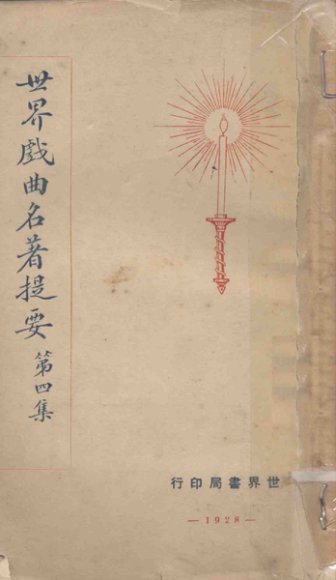 世界戲曲名著提要 第四集
世界書局印行
— 1928 —